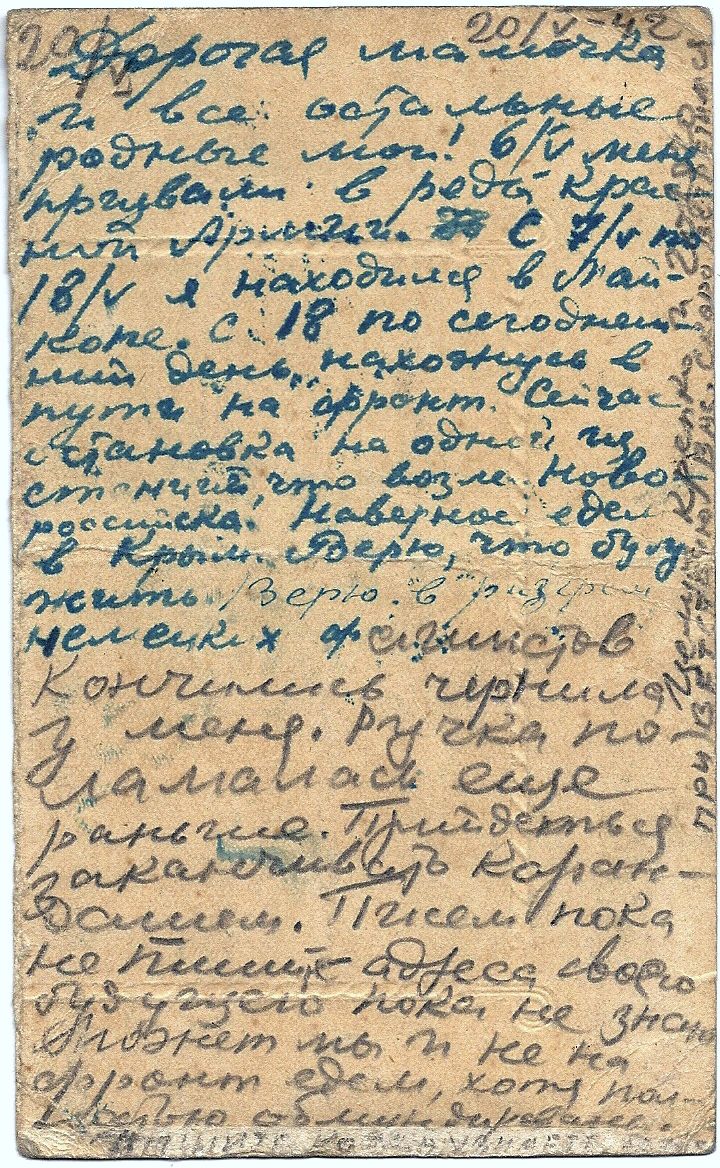 20/V-42
20/V
Дорогая мамочка
и все остальные
родные мои! 6/V меня
призвали в ряды Крас
ной Армии. С 7/V по
18/V я находился в Май-
копе. С 18 по сегодняш-
ний день, нахожусь в
пути на фронт. Сейчас
остановка на одной из
станций, что возле Ново-
российска. Наверное едем
в Крым. Верю, что буду
жить Верю в разгром
немецких фашистов
Кончились чернила
у меня. Ручка по-
ламалась еще
раньше. Прийдеться
заканчивать коран-
дашем. Писем пока
не пишите адреса своего
будущего пока не знаю
Может мы и не на
фронт едем, хотя пол-
ностью обмундированы.
Целую крепко и
привет